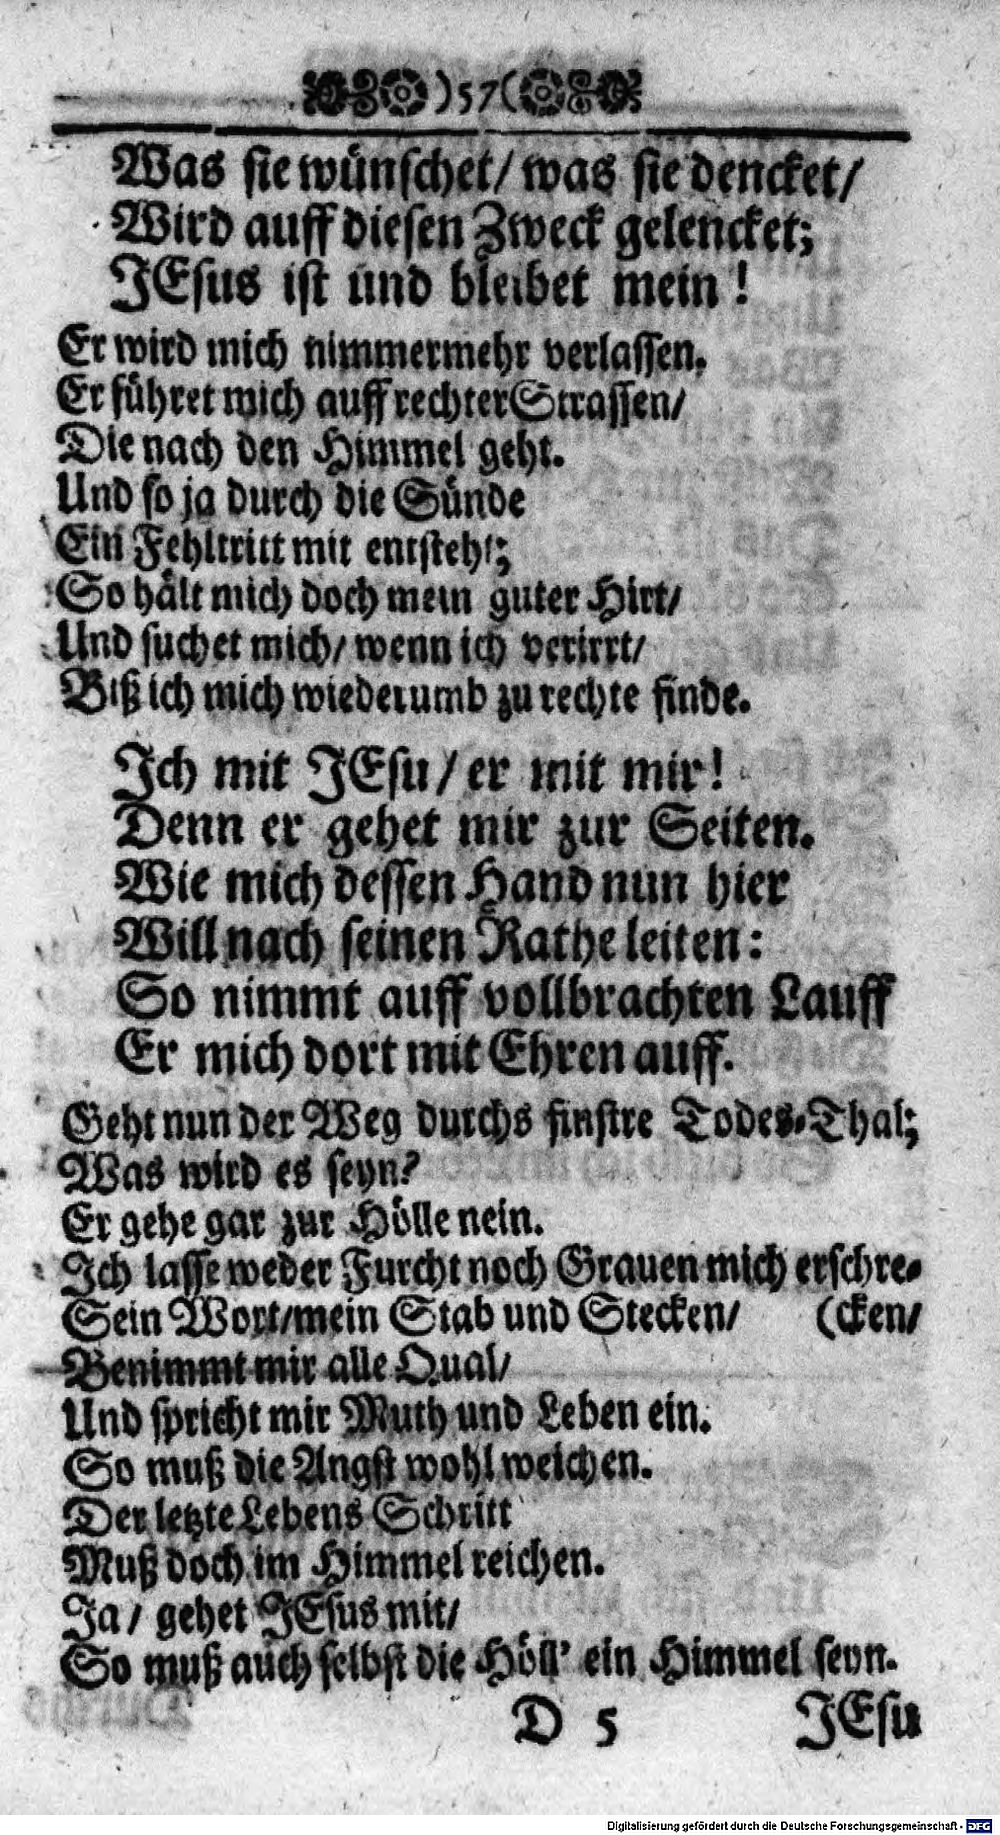 )57(
Was sie wünschet/ was sie dencket/
Wird auff diesen Zweck gelencket;
JEsus ist und bleibet mein!
Er wird mich nimmermehr verlassen.
Er führet mich auff rechter Strassen/
Die nach den Himmel geht.
Und so ja durch die Sünde
Ein Fehltritt mit entsteht;
So hält mich doch mein guter Hirt/
Und suchet mich/ wenn ich verirrt/
Biß ich mich wiederumb zu rechte finde.
Ich mit JEsu/ er mit mir!
Denn er gehet mir zur Seiten.
Wie mich dessen Hand nun hier
Will nach seinen Rathe leiten:
So nimmt auff vollbrachten Lauff
Er mich dort mit Ehren auff.
Geht nun der Weg durchs finstre Todes-Thal;
Was wird es seyn?
Er gehe gar zur Hölle nein.
Ich lasse weder Furcht noch Grauen mich erschre-
Sein Wort/mein Stab und Stecken/ (cken/
Benimmt mir alle Qual/
Und spricht mir Muth und Leben ein.
So muß die Angst wohl weichen.
Der letzte Lebens Schritt
Muß doch im Himmel reichen.
Ja/ gehet JEsus mit/
So muß auch selbst die Höll' ein Himmel seyn.
D 5 JEsu
Digitalisierung gefördert durch die Deutsche Forschungsgemeinschaft - DFG